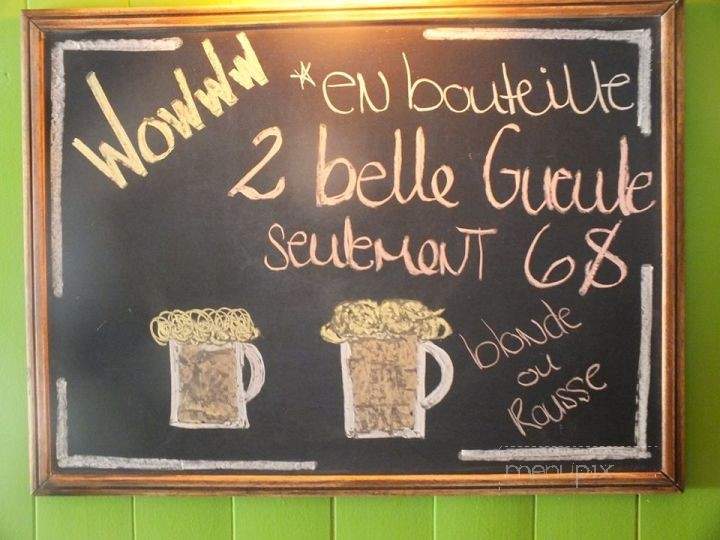 Wowww
*en bouteille
2 belle Gueule
seulement 6$
blonde
ou
Rousse
menupix